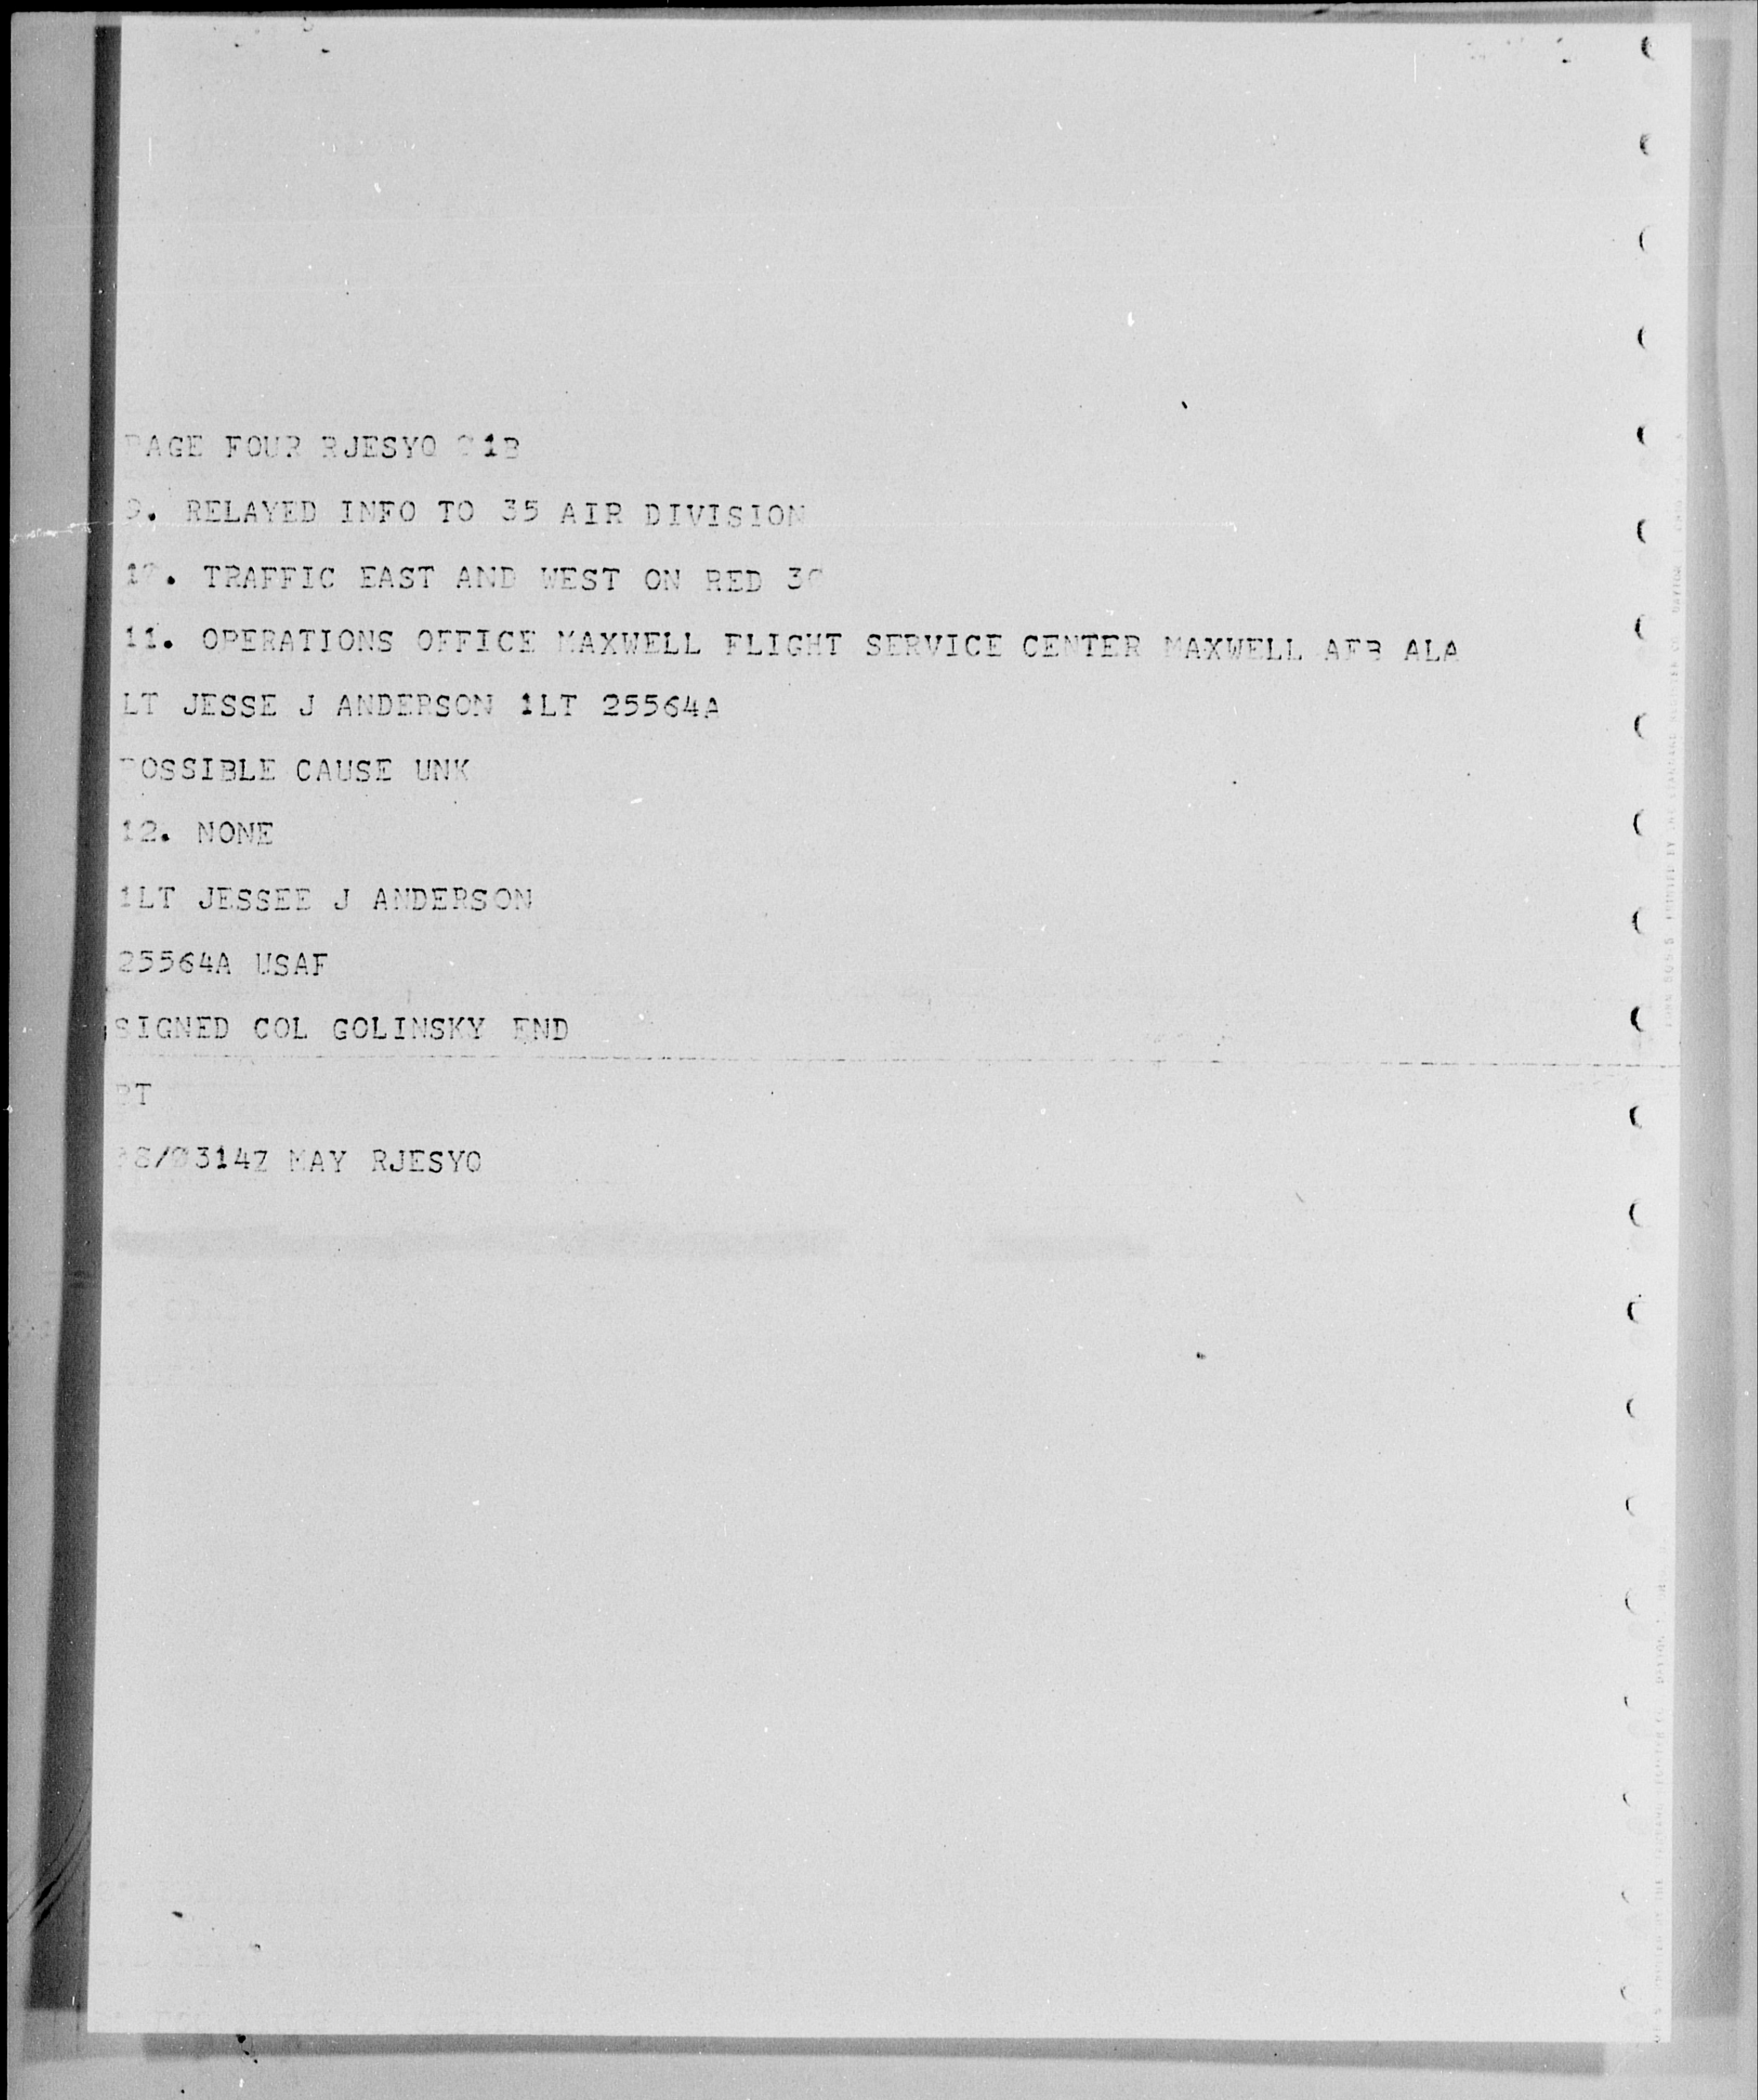 PAGE FOUR RJESYO 01B
9. RELAYED INFO TO 35 AIR DIVISION
10. TRAFFIC EAST AND WEST ON RED 30
11. OPERATIONS OFFICE MAXWELL FLIGHT SERVICE CENTER MAXWELL AFB ALA
LT JESSE J ANDERSON 1LT 25564A
POSSIBLE CAUSE UNK
12. NONE
1LT JESSEE J ANDERSON
25564A USAF
SIGNED COL GOLINSKY END
BT
MAY RJESYO